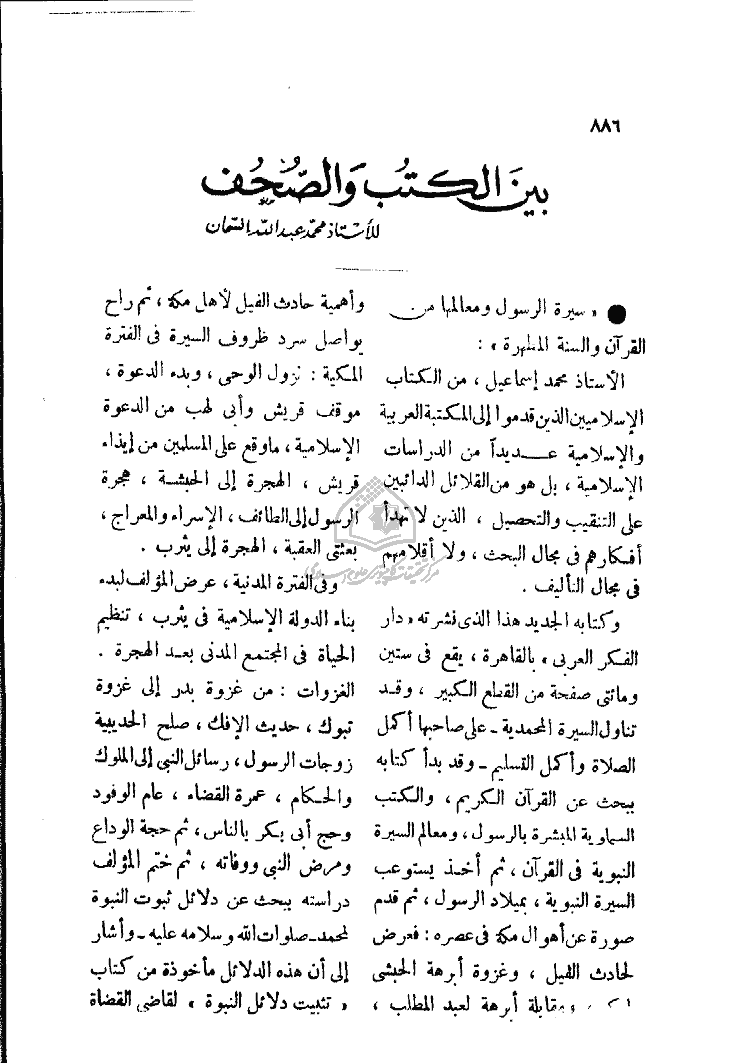 ٨٨٦
بين الكتب والصحف
للأستاذ محمد عبد الله السمان
● « سيرة الرسول ومعالمها من
القرآن والسنة المطهرة » :
الأستاذ محمد إسماعيل ، من الكتاب
الإسلاميين الذين قدموا إلى المكتبة العربية
والإسلامية عديداً من الدراسات
الإسلامية ، بل هو من القلائل الدائبين
على التنقيب والتحصيل ، الذين لا تهدأ
أفكارهم فى مجال البحث ، ولا أقلامهم
فى مجال التأليف .
وكتابه الجديد هذا الذى نشرته « دار
الفكر العربى » بالقاهرة ، يقع فى ستين
ومائتى صفحة من القطع الكبير ، وقد
تناول السيرة المحمدية ـ على صاحبها أكمل
الصلاة وأكمل التسليم ـ وقد بدأ كتابه
ببحث عن القرآن الكريم ، والكتب
السماوية المبشرة بالرسول ، ومعالم السيرة
النبوية فى القرآن ، ثم أخذ يستوعب
السيرة النبوية ، بميلاد الرسول ، ثم قدم
صورة عن أهوال مكة فى عصره : فعرض
لحادث الفيل ، وغزوة أبرهة الحبشى
ومقابلة أبرهة لعبد المطلب ،
وأهمية حادث الفيل لأهل مكة ، ثم راح
يواصل سرد ظروف السيرة فى الفترة
المكية : نزول الوحى ، وبدء الدعوة ،
موقف قريش وأبى لهب من الدعوة
الإسلامية ، ماوقع على المسلمين من إيذاء
قريش ، الهجرة إلى الحبشة ، هجرة
الرسول إلى الطائف ، الإسراء والمعراج ،
بعثتى العقبة ، الهجرة إلى يثرب .
وفى الفترة المدنية ، عرض المؤلف لبدء
بناء الدولة الإسلامية فى يثرب ، تنظيم
الحياة فى المجتمع المدنى بعد الهجرة .
الغزوات : من غزوة بدر إلى غزوة
تبوك ، حديث الإفك ، صلح الحديبية
زوجات الرسول ، رسائل النبى إلى الملوك
والحكام ، عمرة القضاء ، عام الوفود
وحج أبى بكر بالناس ، ثم حجة الوداع
ومرض النبى ووفاته ، ثم ختم المؤلف
دراسته ببحث عن دلائل ثبوت النبوة
لمحمد ـ صلوات الله وسلامه عليه ـ وأشار
إلى أن هذه الدلائل مأخوذة من كتاب
« تثبيت دلائل النبوة » لقاضى القضاة